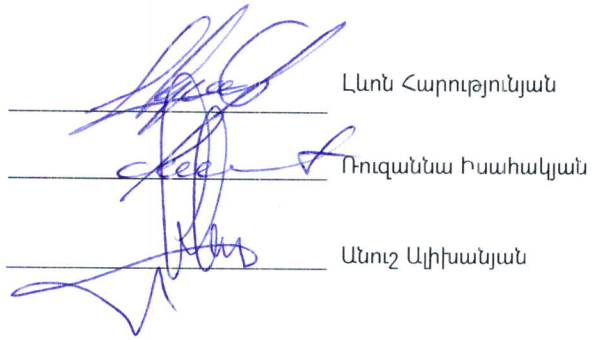 Լևոն Հարությունյան
Ռուզաննա Իսահակյան
Անուշ Ալիխանյան